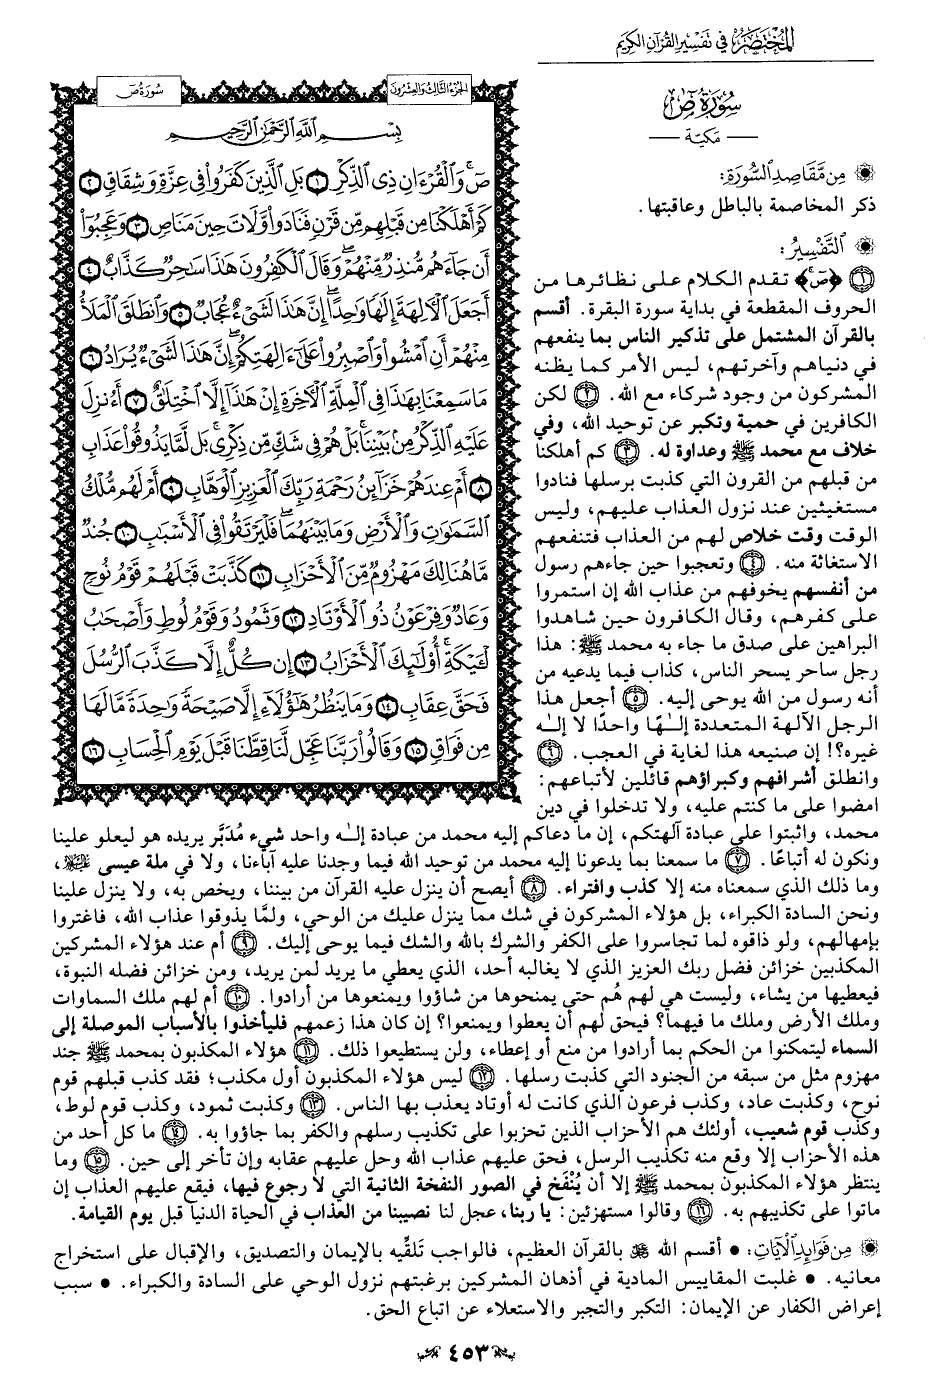 المختصر في تفسير القرآن الكريم
سُورَةُ صٓ
مكيّة
مِن مَّقَاصِدِ السُّورَةِ:
ذكر المخاصمة بالباطل وعاقبتها.
التَّفْسِيرُ:
١ ﴿صٓ﴾ تقدم الكلام على نظائرها من
الحروف المقطعة في بداية سورة البقرة. أقسم
بالقرآن المشتمل على تذكير الناس بما ينفعهم
في دنياهم وآخرتهم، ليس الأمر كما يظنه
المشركون من وجود شركاء مع الله. ٢ لكن
الكافرين في حمية وتكبر عن توحيد الله، وفي
خلاف مع محمد ﷺ وعداوة له. ٣ كم أهلكنا
من قبلهم من القرون التي كذبت برسلها فنادوا
مستغيثين عند نزول العذاب عليهم، وليس
الوقت وقت خلاص لهم من العذاب فتنفعهم
الاستغاثة منه. ٤ وتعجبوا حين جاءهم رسول
من أنفسهم يخوفهم من عذاب الله إن استمروا
على كفرهم، وقال الكافرون حين شاهدوا
البراهين على صدق ما جاء به محمد ﷺ: هذا
رجل ساحر يسحر الناس، كذاب فيما يدعيه من
أنه رسول من الله يوحى إليه. ٥ أجعل هذا
الرجل الآلهة المتعددة إلـٰهًا واحدًا لا إلـٰه
غيره؟! إن صنيعه هذا لغاية في العجب. ٦
وانطلق أشرافهم وكبراؤهم قائلين لأتباعهم:
امضوا على ما كنتم عليه، ولا تدخلوا في دين
محمد، واثبتوا على عبادة آلهتكم، إن ما دعاكم إليه محمد من عبادة إلـٰه واحد شيء مُدَبَّر يريده هو ليعلو علينا
ونكون له أتباعًا. ٧ ما سمعنا بما يدعونا إليه محمد من توحيد الله فيما وجدنا عليه آباءنا، ولا في ملة عيسى ﵇،
وما ذلك الذي سمعناه منه إلا كذب وافتراء. ٨ أيصح أن ينزل عليه القرآن من بيننا، ويخص به، ولا ينزل علينا
ونحن السادة الكبراء، بل هؤلاء المشركون في شك مما ينزل عليك من الوحي، ولمَّا يذوقوا عذاب الله، فاغتروا
بإمهالهم، ولو ذاقوه لما تجاسروا على الكفر والشرك بالله والشك فيما يوحى إليك. ٩ أم عند هؤلاء المشركين
المكذبين خزائن فضل ربك العزيز الذي لا يغالبه أحد، الذي يعطي ما يريد لمن يريد، ومن خزائن فضله النبوة،
فيعطيها من يشاء، وليست هي لهم هُم حتى يمنحوها من شاؤوا ويمنعوها من أرادوا. ١٠ أم لهم ملك السماوات
وملك الأرض وملك ما فيهما؟ فيحق لهم أن يعطوا ويمنعوا؟ إن كان هذا زعمهم فليأخذوا بالأسباب الموصلة إلى
السماء ليتمكنوا من الحكم بما أرادوا من منع أو إعطاء، ولن يستطيعوا ذلك. ١١ هؤلاء المكذبون بمحمد ﷺ جند
مهزوم مثل من سبقه من الجنود التي كذبت رسلها. ١٢ ليس هؤلاء المكذبون أول مكذب؛ فقد كذب قبلهم قوم
نوح، وكذبت عاد، وكذب فرعون الذي كانت له أوتاد يعذب بها الناس. ١٣ وكذبت ثمود، وكذب قوم لوط،
وكذب قوم شعيب، أولئك هم الأحزاب الذين تحزبوا على تكذيب رسلهم والكفر بما جاؤوا به. ١٤ ما كل أحد من
هذه الأحزاب إلا وقع منه تكذيب الرسل، فحق عليهم عذاب الله وحل عليهم عقابه وإن تأخر إلى حين. ١٥ وما
ينتظر هؤلاء المكذبون بمحمد ﷺ إلا أن يُنْفَخ في الصور النفخة الثانية التي لا رجوع فيها، فيقع عليهم العذاب إن
ماتوا على تكذيبهم به. ١٦ وقالوا مستهزئين: يا ربنا، عجل لنا نصيبنا من العذاب في الحياة الدنيا قبل يوم القيامة.
مِن فَوَائِدِ الْآيَاتِ: • أقسم الله ﷻ بالقرآن العظيم، فالواجب تَلقِّيه بالإيمان والتصديق، والإقبال على استخراج
معانيه. • غلبت المقاييس المادية في أذهان المشركين برغبتهم نزول الوحي على السادة والكبراء. • سبب
إعراض الكفار عن الإيمان: التكبر والتجبر والاستعلاء عن اتباع الحق.
الجزء الثالث والعشرون
سُورَةُ صٓ
بِسْمِ اللَّهِ الرَّحْمَٰنِ الرَّحِيمِ
صٓ ۚ وَالْقُرْءَانِ ذِي الذِّكْرِ ١ بَلِ الَّذِينَ كَفَرُوا فِي عِزَّةٍ وَشِقَاقٍ ٢
كَمْ أَهْلَكْنَا مِن قَبْلِهِم مِّن قَرْنٍ فَنَادَوا وَّلَاتَ حِينَ مَنَاصٍ ٣ وَعَجِبُوٓا
أَن جَآءَهُم مُّنذِرٌ مِّنْهُمْ ۖ وَقَالَ الْكَٰفِرُونَ هَٰذَا سَٰحِرٌ كَذَّابٌ ٤
أَجَعَلَ الْأَلِهَةَ إِلَٰهًا وَٰحِدًا ۖ إِنَّ هَٰذَا لَشَيْءٌ عُجَابٌ ٥ وَانطَلَقَ الْمَلَأُ
مِنْهُمْ أَنِ امْشُوا وَاصْبِرُوا عَلَىٰٓ ءَالِهَتِكُمْ ۖ إِنَّ هَٰذَا لَشَيْءٌ يُرَادُ ٦
مَا سَمِعْنَا بِهَٰذَا فِي الْمِلَّةِ الْأَخِرَةِ إِنْ هَٰذَآ إِلَّا اخْتِلَٰقٌ ٧ أَءُنزِلَ
عَلَيْهِ الذِّكْرُ مِنۢ بَيْنِنَا ۚ بَلْ هُمْ فِي شَكٍّ مِّن ذِكْرِي ۖ بَل لَّمَّا يَذُوقُوا عَذَابِ
٨ أَمْ عِندَهُمْ خَزَآئِنُ رَحْمَةِ رَبِّكَ الْعَزِيزِ الْوَهَّابِ ٩ أَمْ لَهُم مُّلْكُ
السَّمَٰوَٰتِ وَالْأَرْضِ وَمَا بَيْنَهُمَا ۖ فَلْيَرْتَقُوا فِي الْأَسْبَٰبِ ١٠ جُندٌ
مَّا هُنَالِكَ مَهْزُومٌ مِّنَ الْأَحْزَابِ ١١ كَذَّبَتْ قَبْلَهُمْ قَوْمُ نُوحٍ
وَعَادٌ وَفِرْعَوْنُ ذُو الْأَوْتَادِ ١٢ وَثَمُودُ وَقَوْمُ لُوطٍ وَأَصْحَٰبُ
لْـَٔيْكَةِ ۚ أُولَٰٓئِكَ الْأَحْزَابُ ١٣ إِن كُلٌّ إِلَّا كَذَّبَ الرُّسُلَ
فَحَقَّ عِقَابِ ١٤ وَمَا يَنظُرُ هَٰٓؤُلَآءِ إِلَّا صَيْحَةً وَٰحِدَةً مَّا لَهَا
مِن فَوَاقٍ ١٥ وَقَالُوا رَبَّنَا عَجِّل لَّنَا قِطَّنَا قَبْلَ يَوْمِ الْحِسَابِ ١٦
٤٥٣